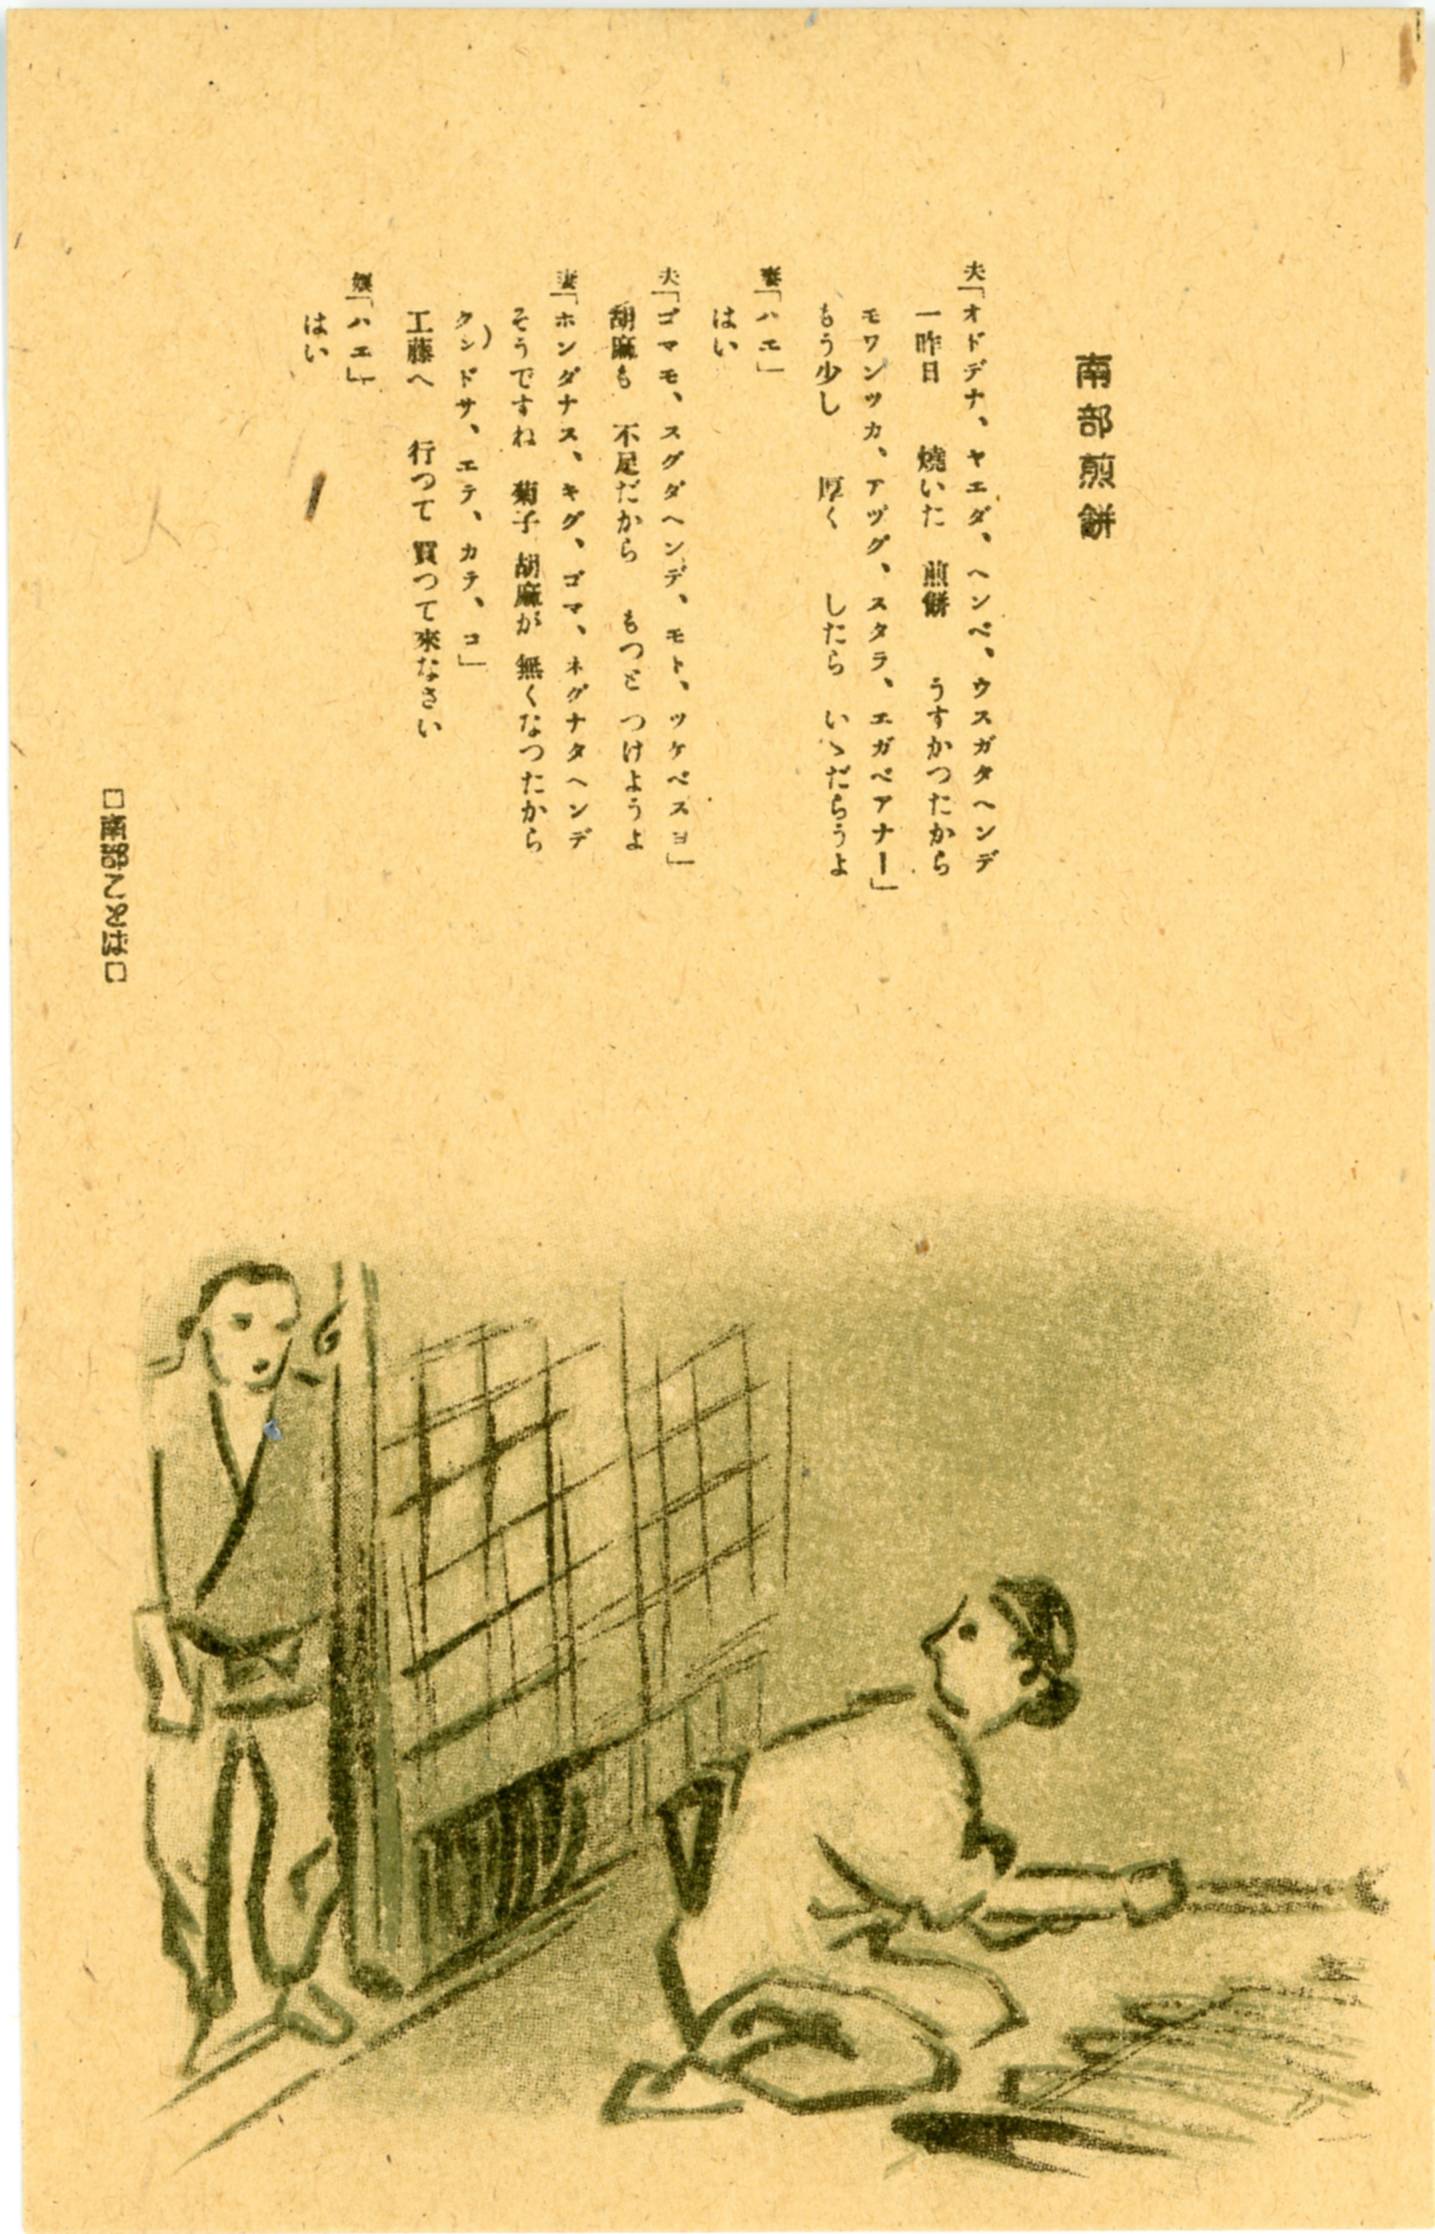 南部煎餅
夫「オドデナ、ヤエダ、ヘンペ、ウスガタヘンデ
一昨日 燒いた 煎餅 うすかつたから
モワンツカ、アヅグ、スタラ、エガベアナー」
もう少し 厚く したら いゝだらうよ
妻「ハエ」
はい
夫「ゴマモ、スグダヘンデ、モト、ツケベスヨ」
胡麻も 不足だから もつと つけようよ
妻「ホンダナス、キグ、ゴマ、ネグナタヘンデ
そうですね 菊子 胡麻が 無くなつたから
クンドサ、エテ、カテ、コ」
工藤へ 行つて 買つて來なさい
「ハエ」
はい
□南部ことば□